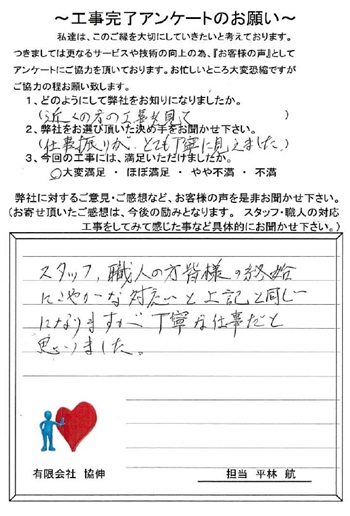 ～工事完了アンケートのお願い～
私達は、このご縁を大切にしていきたいと考えております。
つきましては更なるサービスや技術の向上の為、『お客様の声』として
アンケートにご協力を頂いております。お忙しいところ大変恐縮ですが
ご協力の程お願い致します。
1、どのようにして弊社をお知りになりましたか。
（近くの方の工事を見て）
2、弊社をお選び頂いた決め手をお聞かせ下さい。
（仕事振りが、とても丁寧に見えました）
3、今回の工事には、満足いただけましたか。
○大変満足 ・ ほぼ満足 ・ やや不満 ・ 不満
弊社に対するご意見・ご感想など、お客様の声を是非お聞かせ下さい。
（お寄せ頂いたご感想は、今後の励みとなります。 スタッフ・職人の対応
工事をしてみて感じた事など具体的にお聞かせ下さい。）
スタッフ、職人の方皆様の終始
にこやかな対応と上記と同じ
になりますが丁寧な仕事だと
思いました。
有限会社 協伸
担当 平林 航